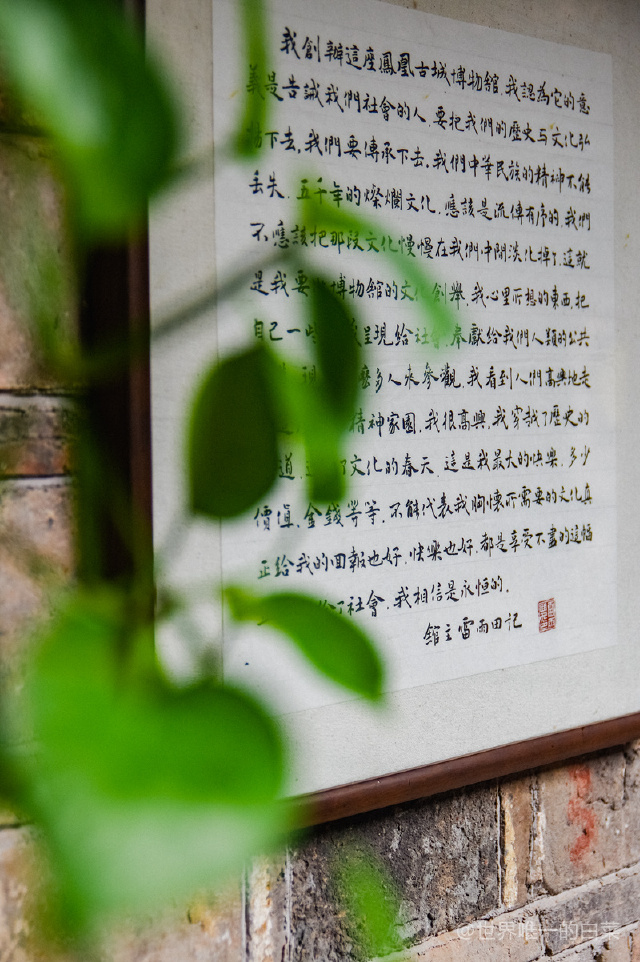 我創辦這座鳳凰古城博物館.我認為它的意
義是告誡我們社會的人.要把我們的歷史与文化弘
下去.我們要傳承下去.我們中華民族的精神不能
丢失.五千年的燦爛文化.應該是流傳有序的.我們
不應該把那段文化慢慢在我們中間淡化掉了.這就
是我要 博物館的文 創舉.我心里所想的東西.把
自己一 呈現給社會.奉獻給我們人類的公共
多人来參觀.我看到人們高興地走
精神家園.我很高興.我穿越了歷史的
道. 了文化的春天.這是我最大的快樂.多少
價值.金錢等等.不能代表我胸懷所需要的文化真
正给我的回報也好.快樂也好.都是享受不盡的這幅
给了社會.我相信是永恒的.
館主雷雨田记
@世界唯一的白菜